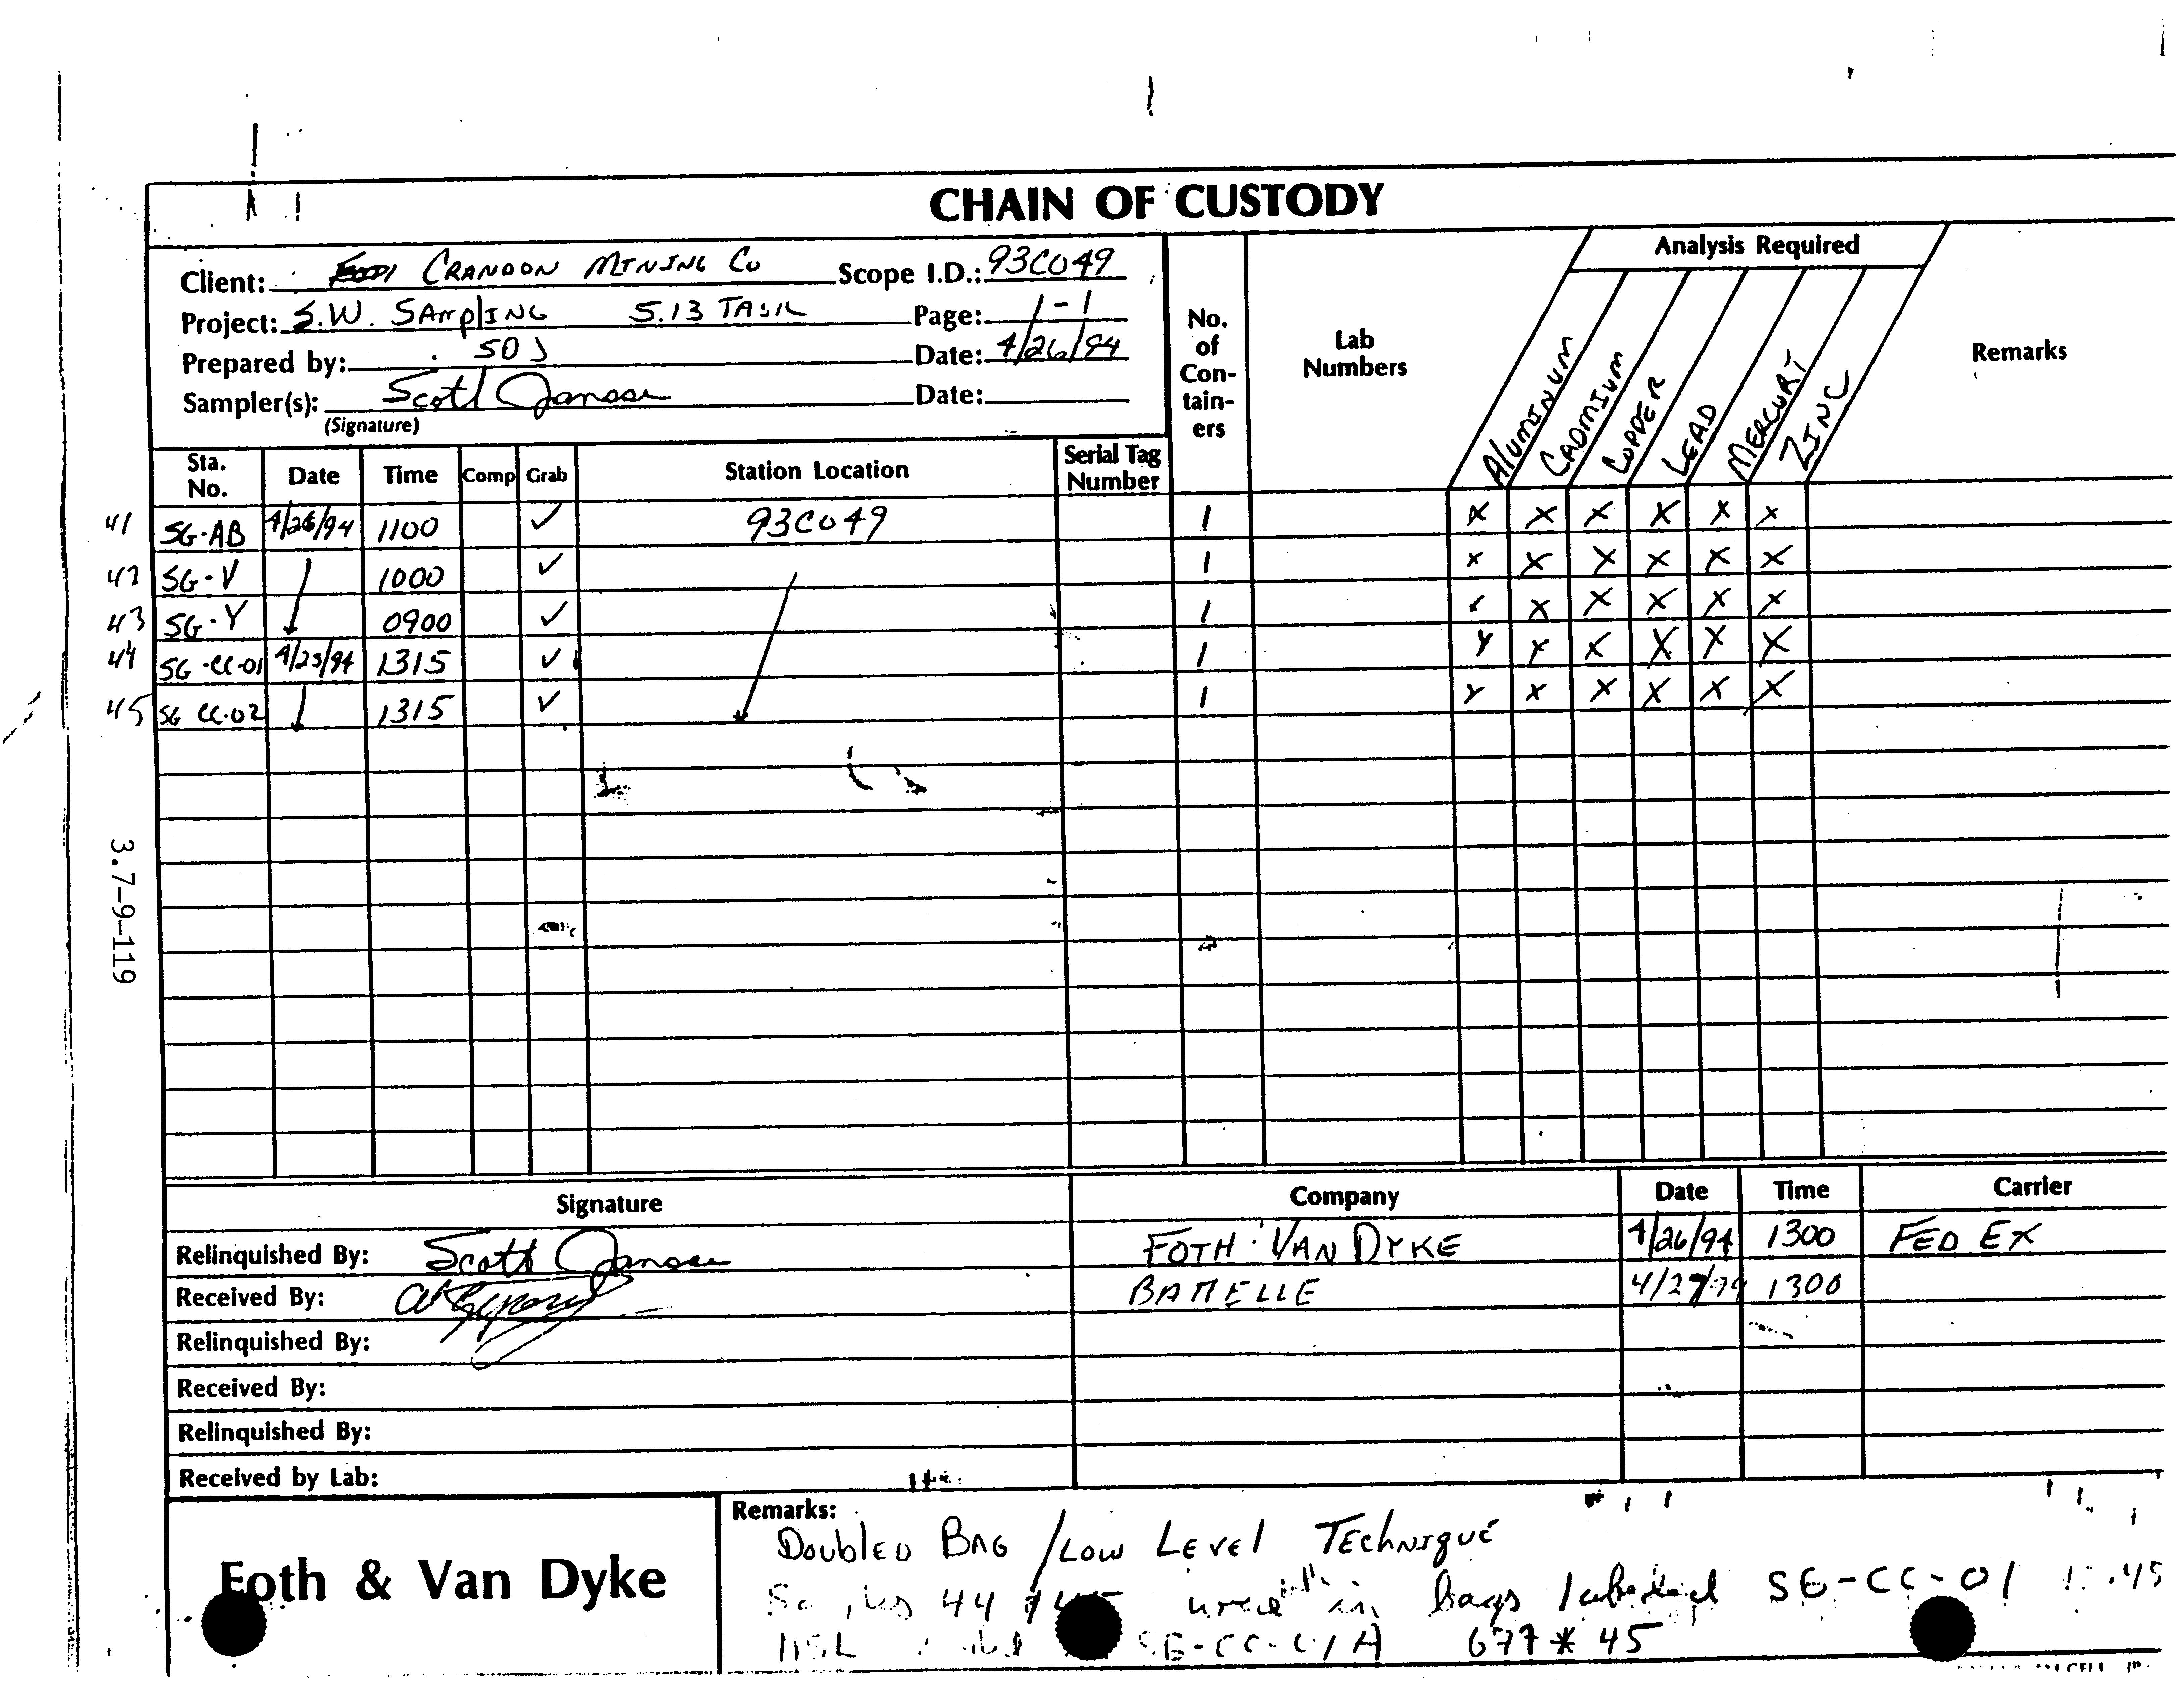 CHAIN OF CUSTODY
Client: CRANDON MINING CO Scope I.D.: 93C049
Project: S.W. SAMPLING 5.13 TASK Page: 1-1
Prepared by: SOJ Date: 4/26/94
Sampler(s): Scott Date:
(Signature)
No. of Con- tain- ers
Lab Numbers
Analysis Required
Aluminum CADMIUM COPPER LEAD MERCURY ZINC
Remarks
Sta. No. Date Time Comp Grab Station Location Serial Tag Number
41 SG-AB 4/26/94 1100 ✓ 93C049 1 X X X X X X
42 SG-V 1000 ✓ 1 X X X X X X
43 SG-Y 0900 ✓ 1 X X X X X X
44 SG-CC-01 4/25/94 1315 ✓ 1 X X X X X X
45 SG CC-02 1315 ✓ 1 X X X X X X
3.7-9-119
Signature Company Date Time Carrier
Relinquished By: Scott FOTH & VAN DYKE 4/26/94 1300 FED EX
Received By: BATTELLE 4/27/94 1300
Relinquished By:
Received By:
Relinquished By:
Received by Lab:
Foth & Van Dyke
Remarks:
DOUBLED BAG / LOW LEVEL TECHNIQUE
44 45 were in bags labeled SG-CC-01
SG-CC-01A 677*45